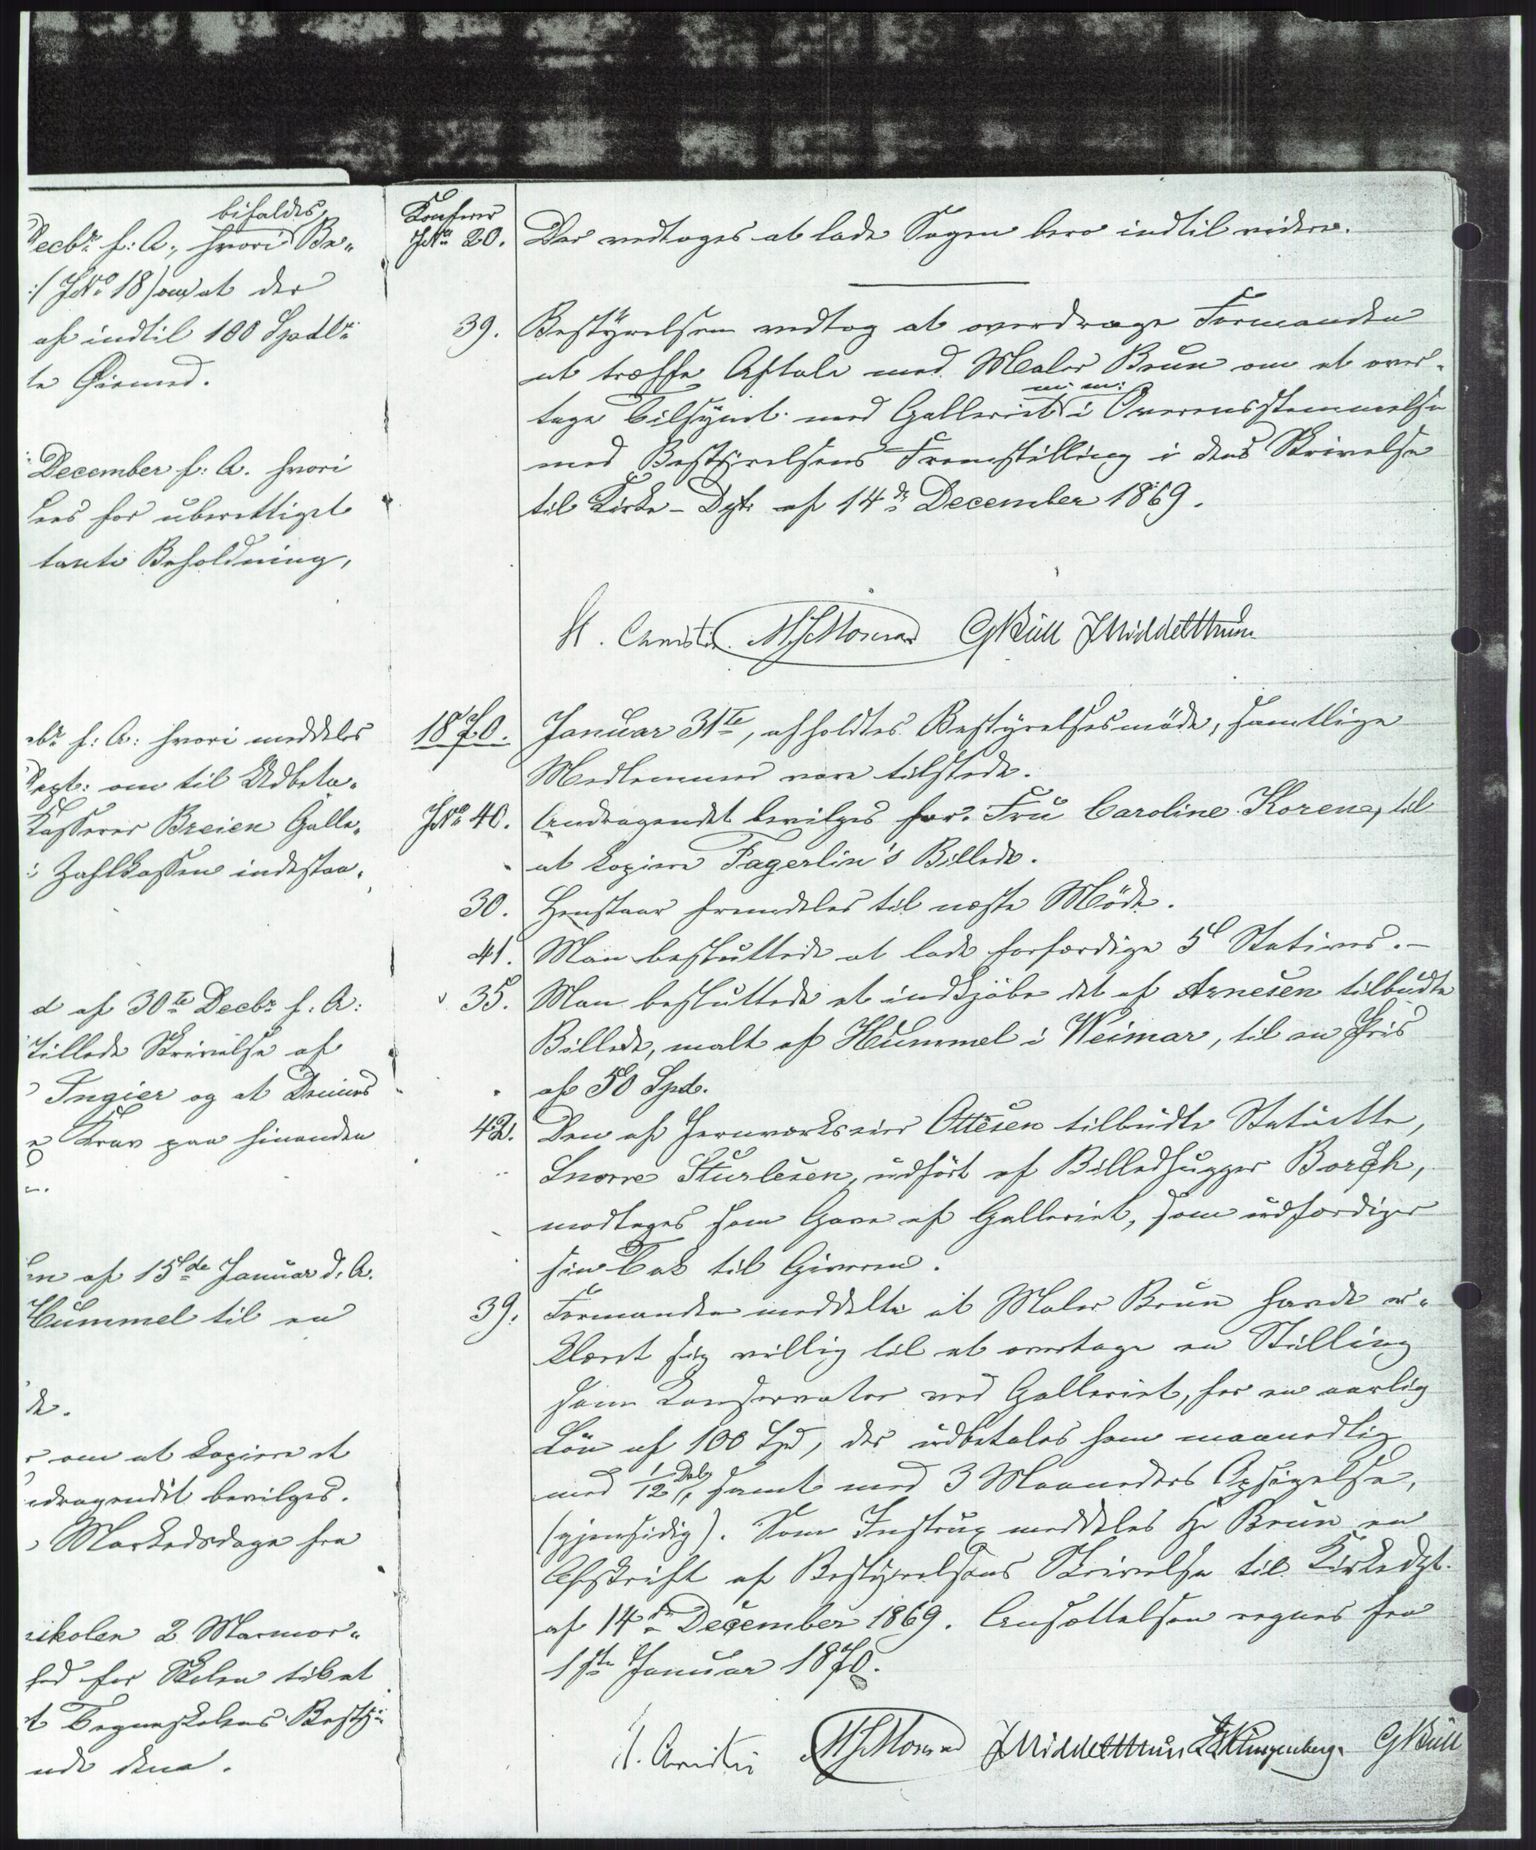 bifaldes
Decbr f: A., hvori Be-
:/ JNo 18) om at der
af indtil 100 Spdlr
te Öiemed.
December f: A. hvori
sees for uberettiget
tante Beholdning,
ebr f: A: hvori meddeles
Dept: om til Udbeta-
Kasserer Breien Galle-
i Zahlkassen indestaa-
d af 30te Decbr f. A:
stillede Skrivelse af
Ingier og at Driius
e Krav paa hinanden
en af 15de Januar d. A.
Hummel til en
de.
r om at kopiere et
ndragendet bevilges.
Markedsdage fra
skolen 2 Marmor-
hed for Skolen til at
t Tegneskolens Besty-
nde dena.
Konferer
JNo 20. Der vedtoges at lade Sagen bero indtil videre.
39. Bestyrelsen vedtog at overdrage Formanden
at træffe Aftale med Maler Brun om at over-
tage Tilsynet med Galleriet m. m: i Overensstemmelse
med Bestyrelsens Fremstilling i dens Skrivelse
til Kirke-Dpt. af 14de December 1869.
H. Christie MJMonrad GBull JMiddelthun
1870. Januar 31te, afholdtes Bestyrelsesmöde, samtlige
Medlemmer vare tilstede.
JNo 40. Andragendet bevilges for Fru Caroline Koren, til
at kopiere Fagerlin's Billede.
30. Henstaar fremdeles til næste Möde.
41. Man besluttede at lade forfærdige 5 Stativer.-
35. Man besluttede at indkjöbe det af Arnesen tilbudte
Billede, malt af Hummel i Weimar, til en Pris
af 50 Spd.
42. Den af Jernværkseier Ottesen tilbudte Statuette,
Snorre Sturlesen, udfört af Billedhugger Borch,
modtages som Gave af Galleriet, som udfærdiger
sin Tak til Giveren.
39. Formanden meddelte at Maler Brun havde er-
klæret sig villig til at overtage en Stilling
som Konservator ved Galleriet, for en aarlig
Lön af 100 Spd, der udbetales ham maanedlig
med 1/12 Del, samt med 3 Maaneders Opsigelse,
(gjensidig). Som Instrux meddeles Hr Brun en
Afskrift af Bestyrelsens Skrivelse til Kirkedpt.
af 14de December 1869. Ansættelsen regnes fra
1ste Januar 1870.
H. Christie MJMonrad JMiddelthun Klingenberg. GBull